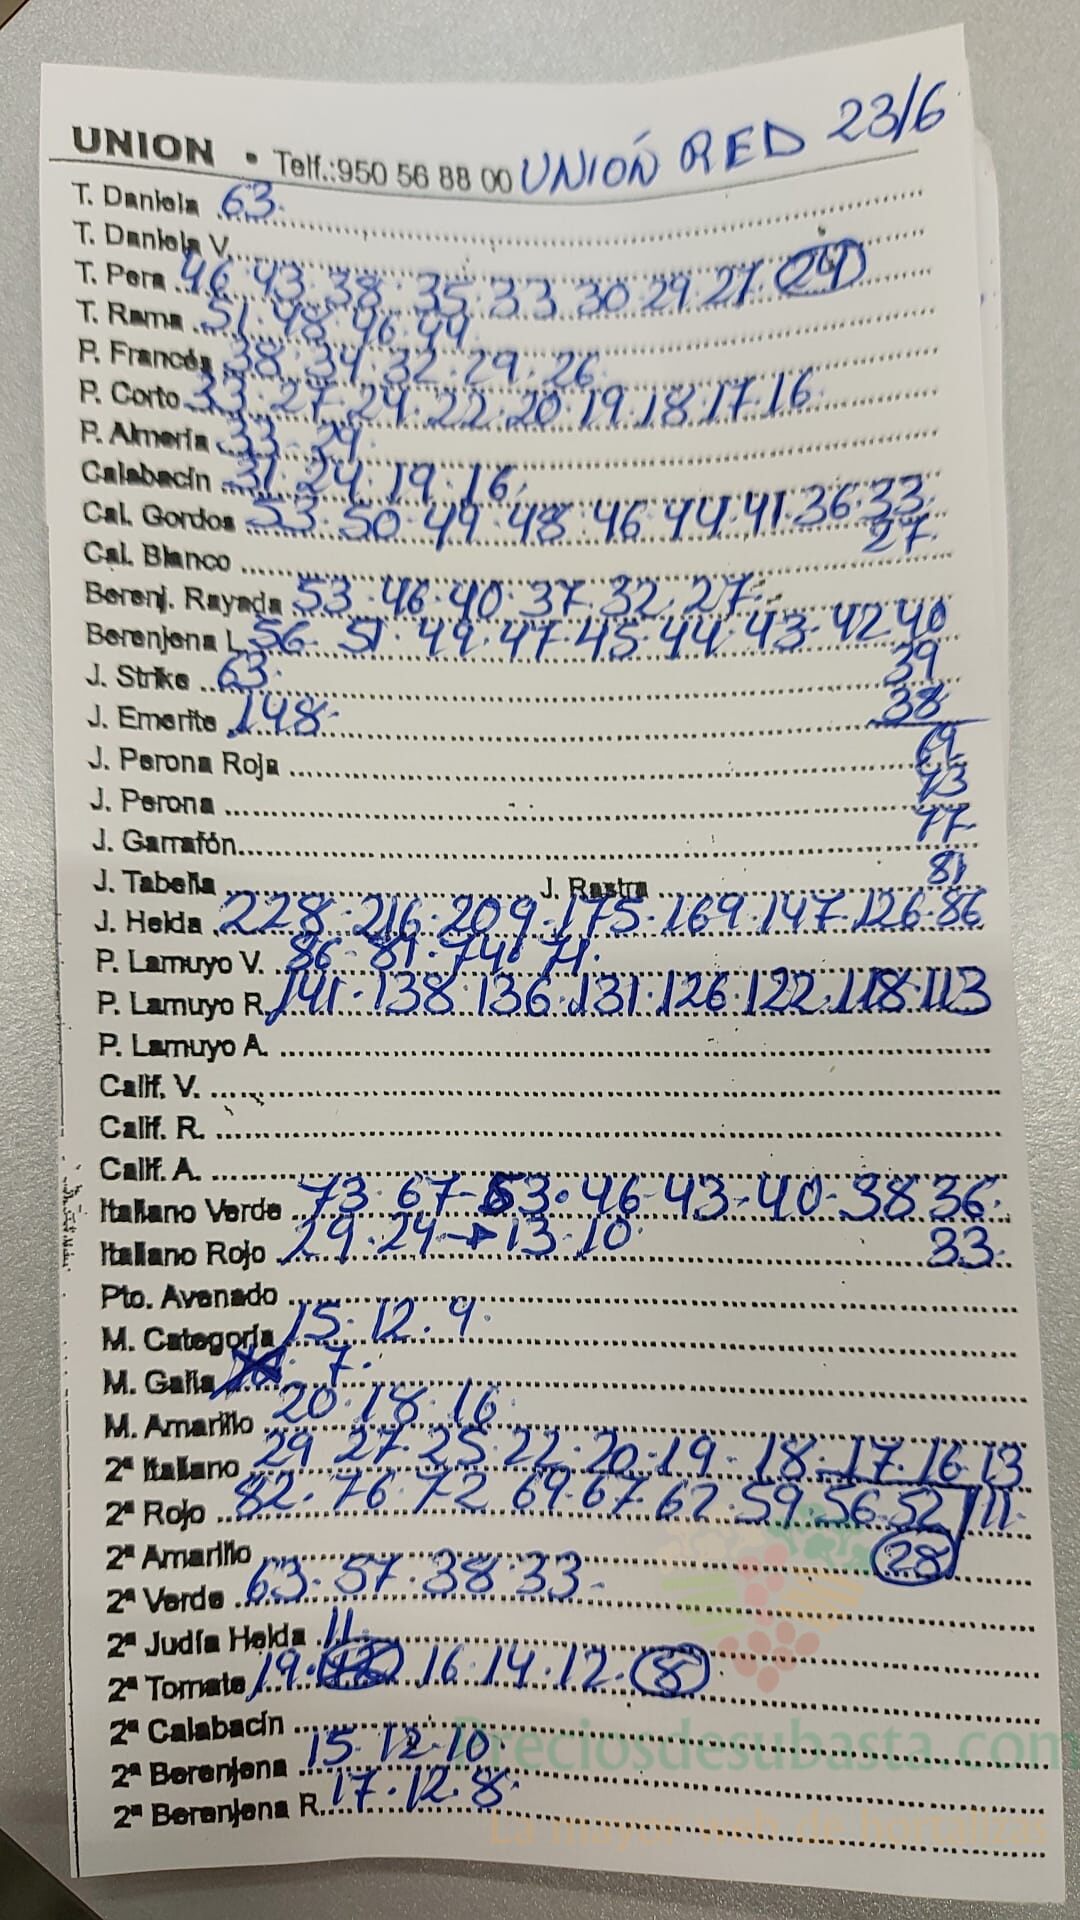 UNION • Telf.:950 56 88 00 UNIÓN RED 23/6
T. Daniela 63.
T. Daniela V.
T. Pera 46.43.38.35.33.30.29.27.24
T. Rama 51.48.46.44
P. Francés 38.34.32.29.26
P. Corto 33.27.24.22.20.19.18.17.16
P. Almería 33-29
Calabacín 31.24.19.16.
Cal. Gordos 53.50.49.48.46.44.41.36.33.
27.
Cal. Blanco
Berenj. Rayada 53.46.40.37.32.27.
Berenjena L. 56-51.49.47.45.44.43-42 40
39
J. Strike 63.
38
J. Emerite 148.
69
J. Perona Roja
73
J. Perona
77
J. Garrafón
81
J. Tabeña J. Rastra
J. Helda 228.216.209-175.169.147.126-86
P. Lamuyo V. 86-81.74.71.
P. Lamuyo R. 141.138.136.131.126.122.118.113
P. Lamuyo A.
Calif. V.
Calif. R.
Calif. A.
Italiano Verde 73.67-53.46-43-40-38 36.
33.
Italiano Rojo 29.24→13-10.
Pto. Avenado
M. Categoría 15.12.9.
M. Galia 7.
M. Amarillo 20.18.16.
2ª Italiano 29 27.25.22.20.19-18.17.16 13
11.
2ª Rojo 82.76.72 69.67.62.59.56.52
28
2ª Amarillo
2ª Verde 63.57.38.33-
2ª Judía Helda 11.
2ª Tomate 19. 16.14.12.8
2ª Calabacín
2ª Berenjena 15.12-10
2ª Berenjena R. 17.12.8.
Preciosdesubasta.com
La mayor web de hortalizas